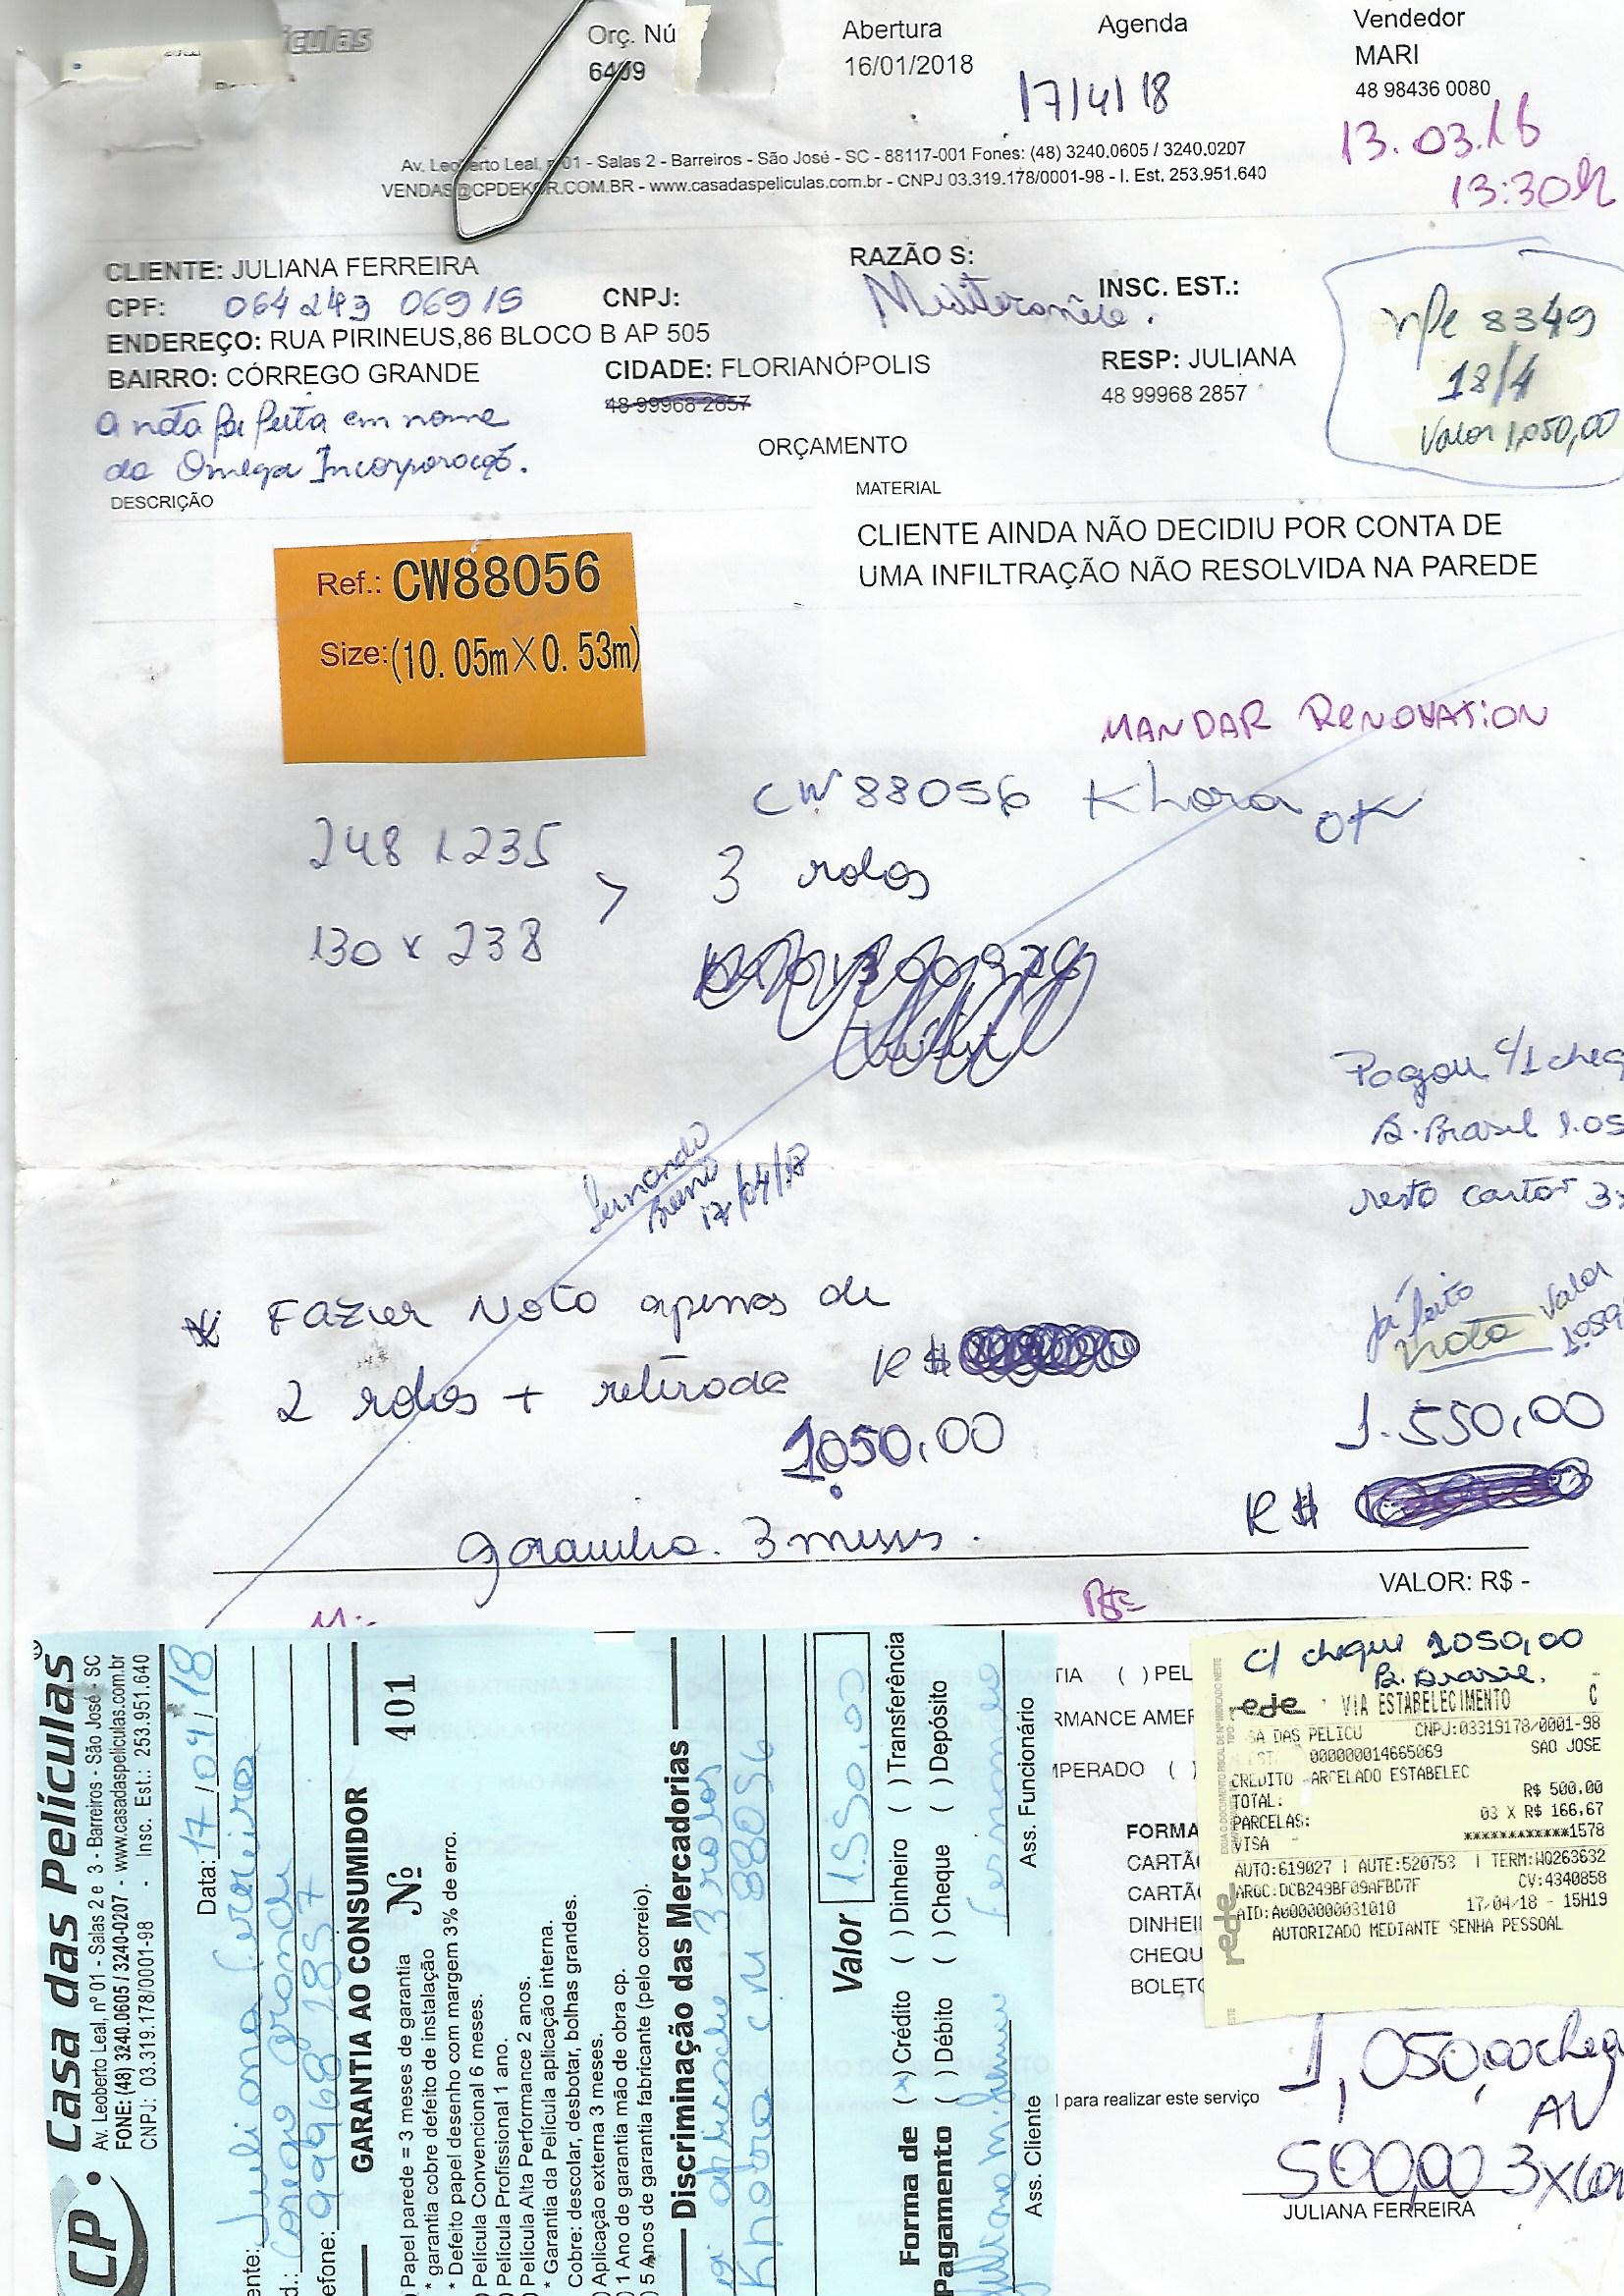 ículas
Orç. Nú
6409
Abertura
16/01/2018
Agenda
17/4/18
Vendedor
MARI
48 98436 0080
13.03.18
13:30h
Av. Leoberto Leal, nº 01 - Salas 2 - Barreiros - São José - SC - 88117-001 Fones: (48) 3240.0605 / 3240.0207
VENDAS@CPDEKOR.COM.BR - www.casadaspeliculas.com.br - CNPJ 03.319.178/0001-98 - I. Est. 253.951.640
CLIENTE: JULIANA FERREIRA
RAZÃO S:
CPF: 064243 06915
CNPJ:
INSC. EST.:
ENDEREÇO: RUA PIRINEUS,86 BLOCO B AP 505
BAIRRO: CÓRREGO GRANDE
CIDADE: FLORIANÓPOLIS
RESP: JULIANA
48 99968 2857
48 99968 2857
nfe 8349
18/4
Valor 1,050,00
A nota foi feita em nome
da Omega Incorporação.
ORÇAMENTO
DESCRIÇÃO
MATERIAL
CLIENTE AINDA NÃO DECIDIU POR CONTA DE
UMA INFILTRAÇÃO NÃO RESOLVIDA NA PAREDE
Ref.: CW88056
Size:(10.05m×0.53m)
MANDAR RENOVATION
CW 88056 Khora OK
248 x 235
130 x 238
> 3 rolos
Pagou c/1 cheq
B. Brasil 1.05
resto cartão 3x
Fernando
Breno
17/04/18
* Fazer Nota apenas de
2 rolos + retirada R$
1050,00
Já feito
Nota Valor
1.550,00
R$
garantia. 3 meses.
VALOR: R$ -
CP. Casa das Películas
Av. Leoberto Leal, nº 01 - Salas 2 e 3 - Barreiros - São José - SC
FONE: (48) 3240.0605 / 3240-0207 - www.casadaspeliculas.com.br
CNPJ: 03.319.178/0001-98 - Insc. Est.: 253.951.640
Data: 17/04/18
ente: Juliana Ferreira
d.: Corrego Grande
efone: 99968 2857
GARANTIA AO CONSUMIDOR
Nº 401
) Papel parede = 3 meses de garantia
* garantia cobre defeito de instalação
* Defeito papel desenho com margem 3% de erro.
) Película Convencional 6 meses.
) Película Profissional 1 ano.
) Película Alta Performance 2 anos.
* Garantia da Película aplicação interna.
Cobre: descolar, desbotar, bolhas grandes.
) Aplicação externa 3 meses.
) 1 Ano de garantia mão de obra cp.
) 5 Anos de garantia fabricante (pelo correio).
Discriminação das Mercadorias
aplicado 3 rolos
Khora CW 88056
Valor 1.550,00
Forma de Pagamento
(x) Crédito ( ) Dinheiro ( ) Transferência
( ) Débito ( ) Cheque ( ) Depósito
Ass. Cliente
Ass. Funcionário Fernando
TIA ( ) PEL
RMANCE AMER
MPERADO ( )
FORMA
CARTÃ
CARTÃ
DINHEI
CHEQU
BOLETO
c/ cheque 1050,00
B. Brasil.
rede VIA ESTABELECIMENTO C
SA DAS PELICU CNPJ:03319178/0001-98
000000014665069 SAO JOSE
CREDITO ARCELADO ESTABELEC
TOTAL: R$ 500.00
PARCELAS: 03 X R$ 166,67
VISA ************1578
AUTO:619027 | AUTE:520753 | TERM:WQ263632
ARQC:DCB249BF09AFBD7F CV:4340858
AID:A0000000031010 17/04/18 - 15H19
AUTORIZADO MEDIANTE SENHA PESSOAL
rede
l para realizar este serviço
1,050,00 cheq
AV
500,00 3x
JULIANA FERREIRA